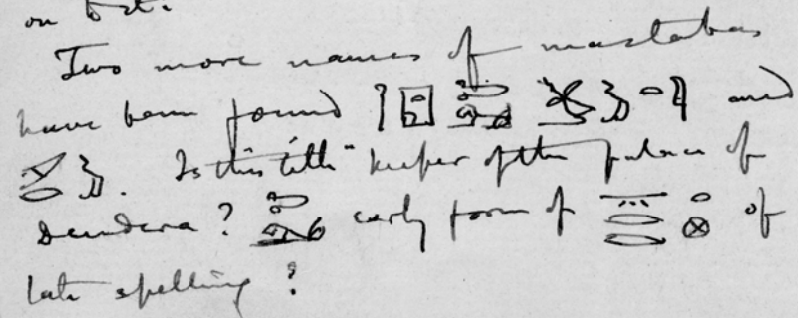 on
Two more names of mastabas
have been found and
Is this title "keeper of the palace of
Dendera? early form of of
late spelling?